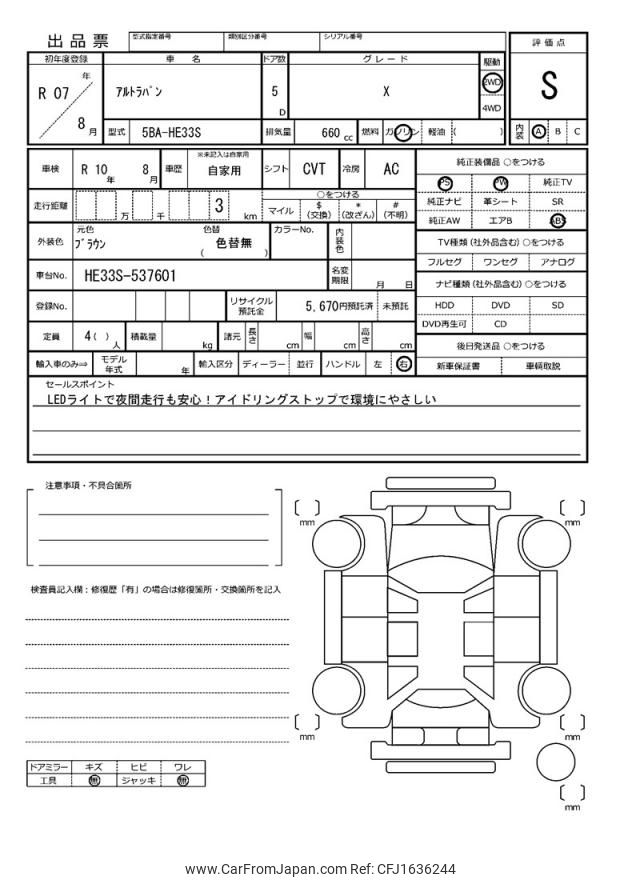 出品票
型式指定番号 類別区分番号 シリアル番号
評価点
S
初年度登録 車名 ドア数 グレード 駆動
R 07 年 8 月
ｱﾙﾄﾗﾊﾟﾝ 5 D X 2WD
4WD
型式 5BA-HE33S 排気量 660 cc 燃料 ガソリン 軽油 ( )
内装 A B C
車検 R 10 年 8 月 車歴 ※未記入は自家用 自家用 シフト CVT 冷房 AC
純正装備品 ○をつける
PS PW 純正TV
純正ナビ 革シート SR
純正AW エアB ABS
走行距離 万 千 3 km
○をつける
マイル $ (交換) * (改ざん) # (不明)
外装色 元色 ﾌﾞﾗｳﾝ 色替 ( 色替無 ) カラーNo. 内装色
TV種類 (社外品含む) ○をつける
フルセグ ワンセグ アナログ
車台No. HE33S-537601 名変期限 月 日
ナビ種類 (社外品含む) ○をつける
HDD DVD SD
DVD再生可 CD
登録No. リサイクル預託金 5,670円預託済 未預託
定員 4( ) 人 積載量 kg 諸元 長さ cm 幅 cm 高さ cm
後日発送品 ○をつける
新車保証書 車輌取説
輸入車のみ⇨ モデル年式 年 輸入区分 ディーラー 並行 ハンドル 左 右
セールスポイント
LEDライトで夜間走行も安心！アイドリングストップで環境にやさしい
注意事項・不具合箇所
検査員記入欄：修復歴「有」の場合は修復箇所・交換箇所を記入
mm
mm
mm
mm
mm
ドアミラー キズ ヒビ ワレ
工具 無 ジャッキ 無
www.CarFromJapan.com Ref: CFJ1636244